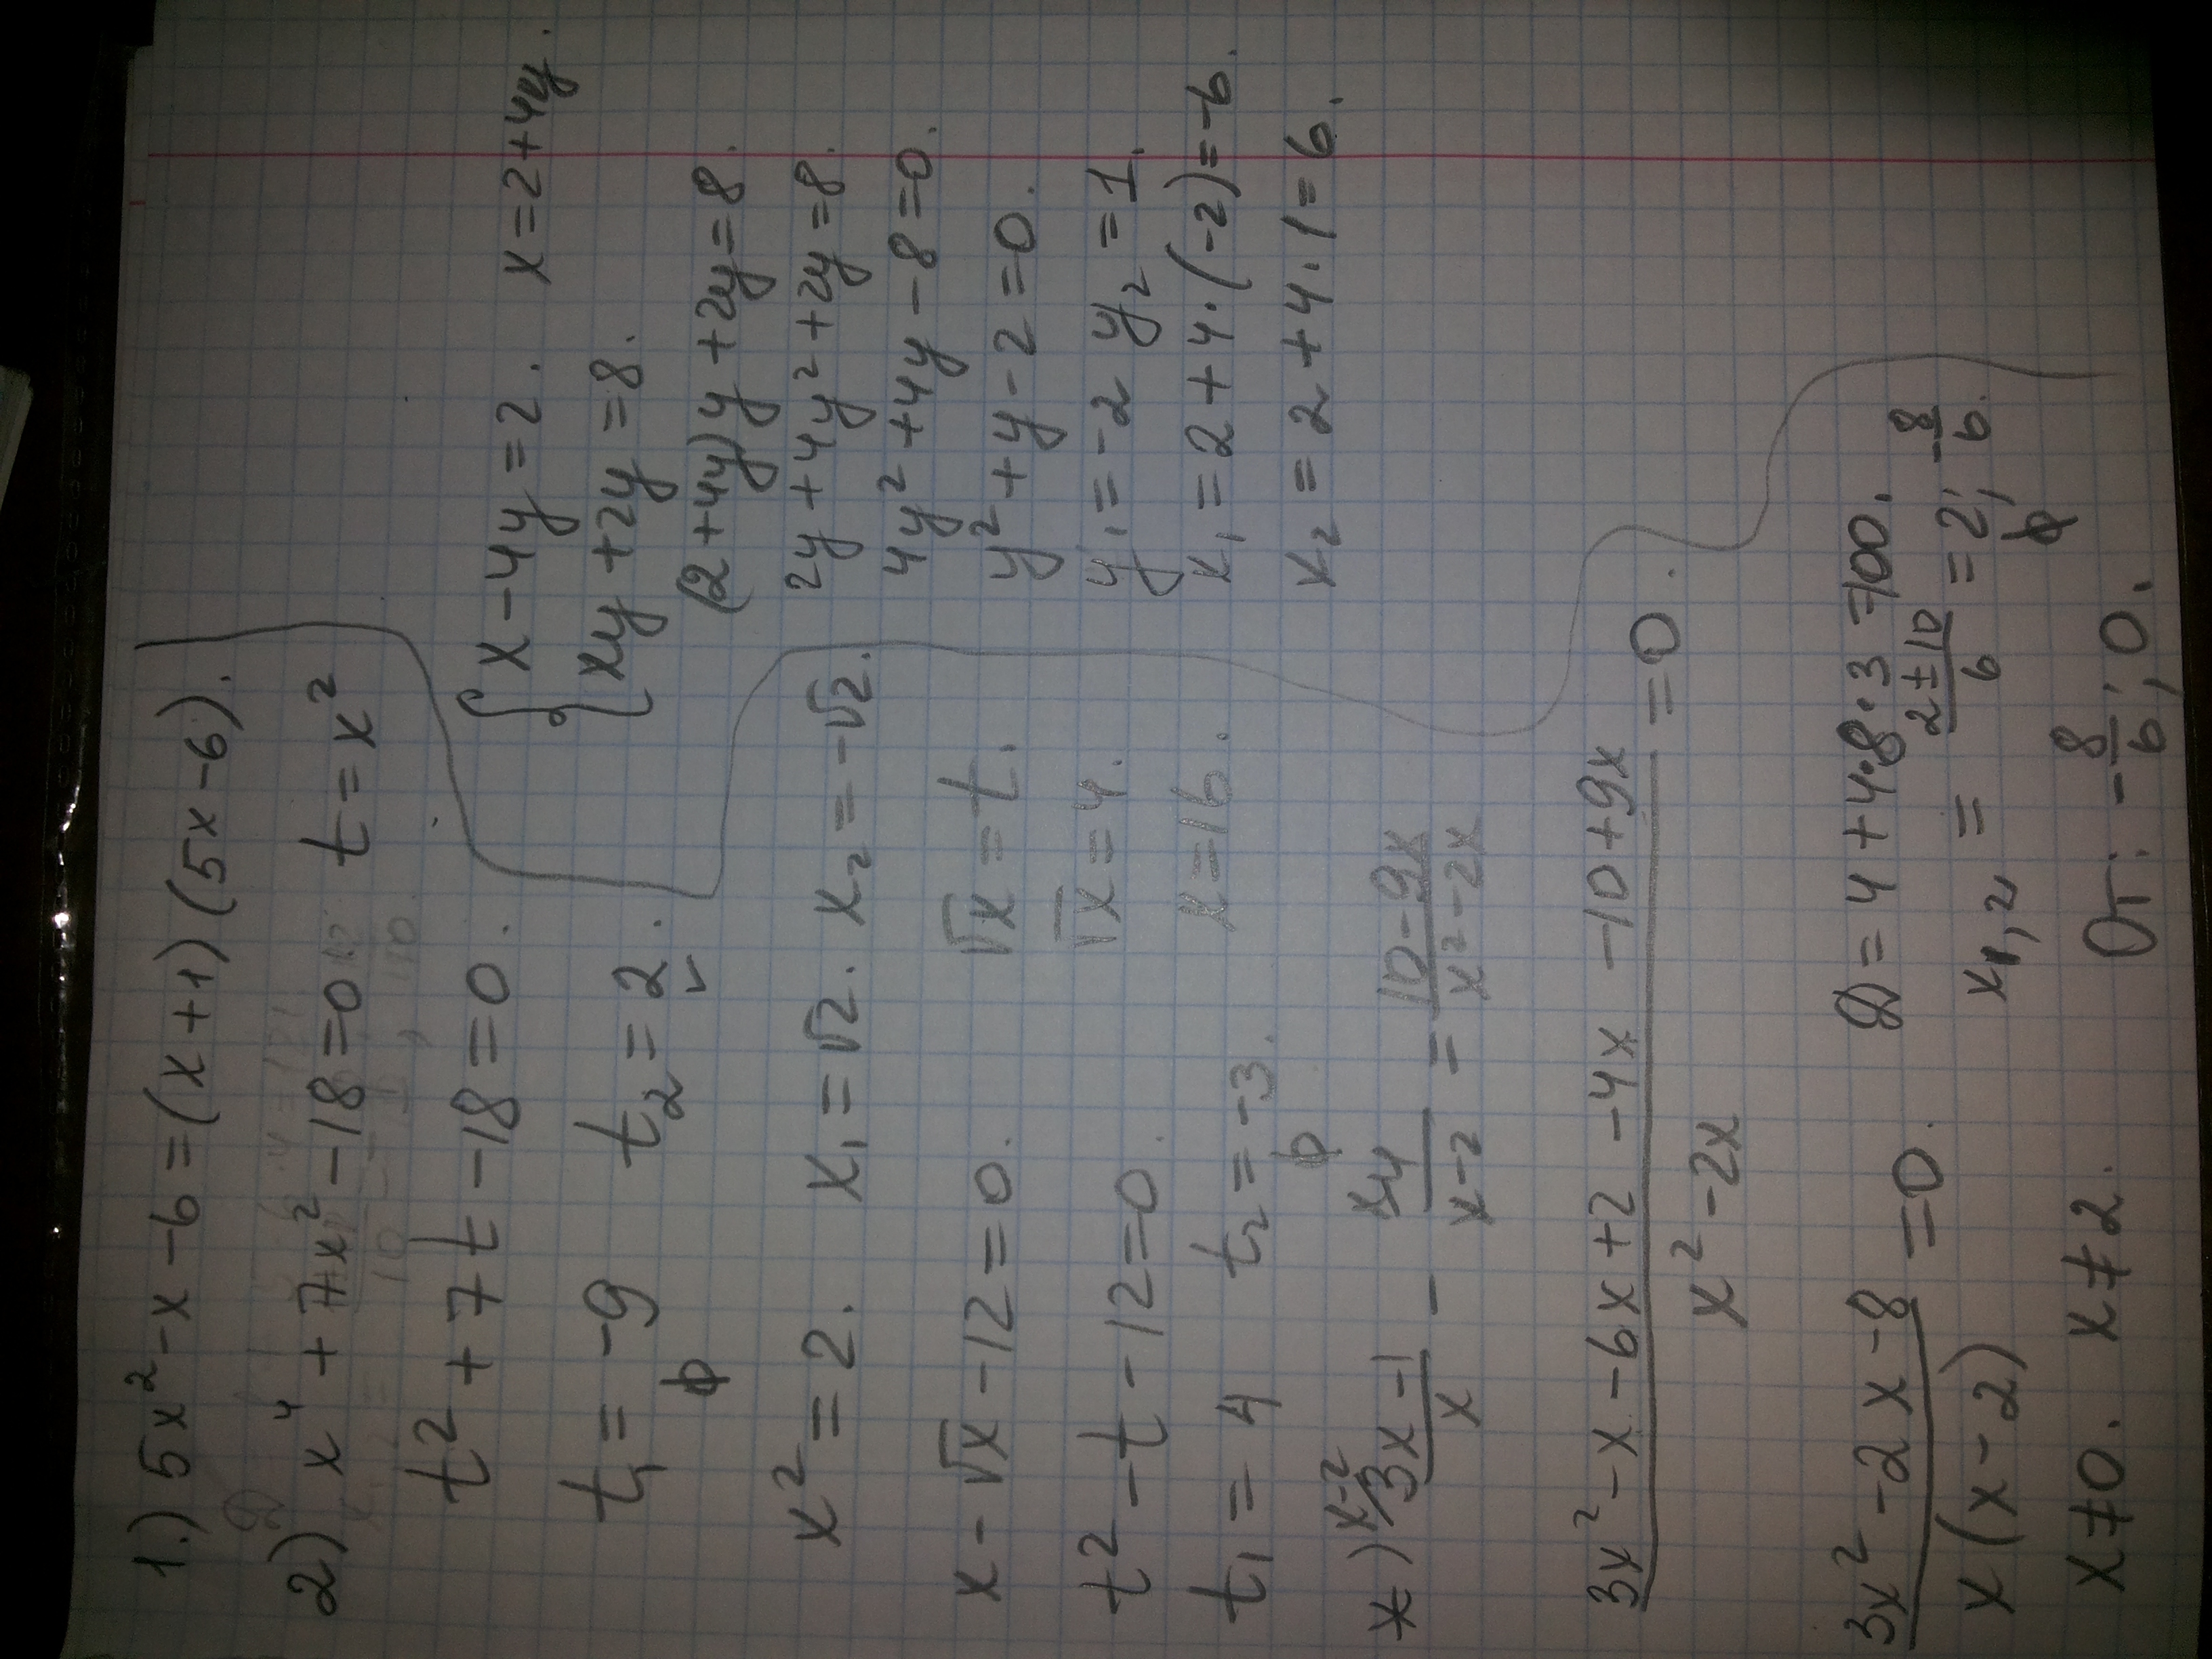 1.) 5x² - x - 6 = (x+1)(5x-6).
2) x⁴ + 7x² - 18 = 0 t = x²
t² + 7t - 18 = 0.
t₁ = -9 t₂ = 2.
ф v
x² = 2. x₁ = √2. x₂ = -√2.
x - √x - 12 = 0. √x = t.
t² - t - 12 = 0. √x = 4.
t₁ = 4 t₂ = -3. x = 16.
ф
*) x-2/ (3x-1)/x - 4/(x-2) = (10-9x)/(x²-2x)
(3x² - x - 6x + 2 - 4x - 10 + 9x)/(x² - 2x) = 0.
(3x² - 2x - 8)/(x(x-2)) = 0.
x ≠ 0. x ≠ 2.
D = 4 + 4·8·3 = 100.
x₁,₂ = (2 ± 10)/6 = 2; -8/6.
ф
От: -8/6; 0.
{ x - 4y = 2. x = 2 + 4y.
xy + 2y = 8.
(2 + 4y)y + 2y = 8.
2y + 4y² + 2y = 8.
4y² + 4y - 8 = 0.
y² + y - 2 = 0.
y₁ = -2 y₂ = 1.
x₁ = 2 + 4·(-2) = -6.
x₂ = 2 + 4·1 = 6.